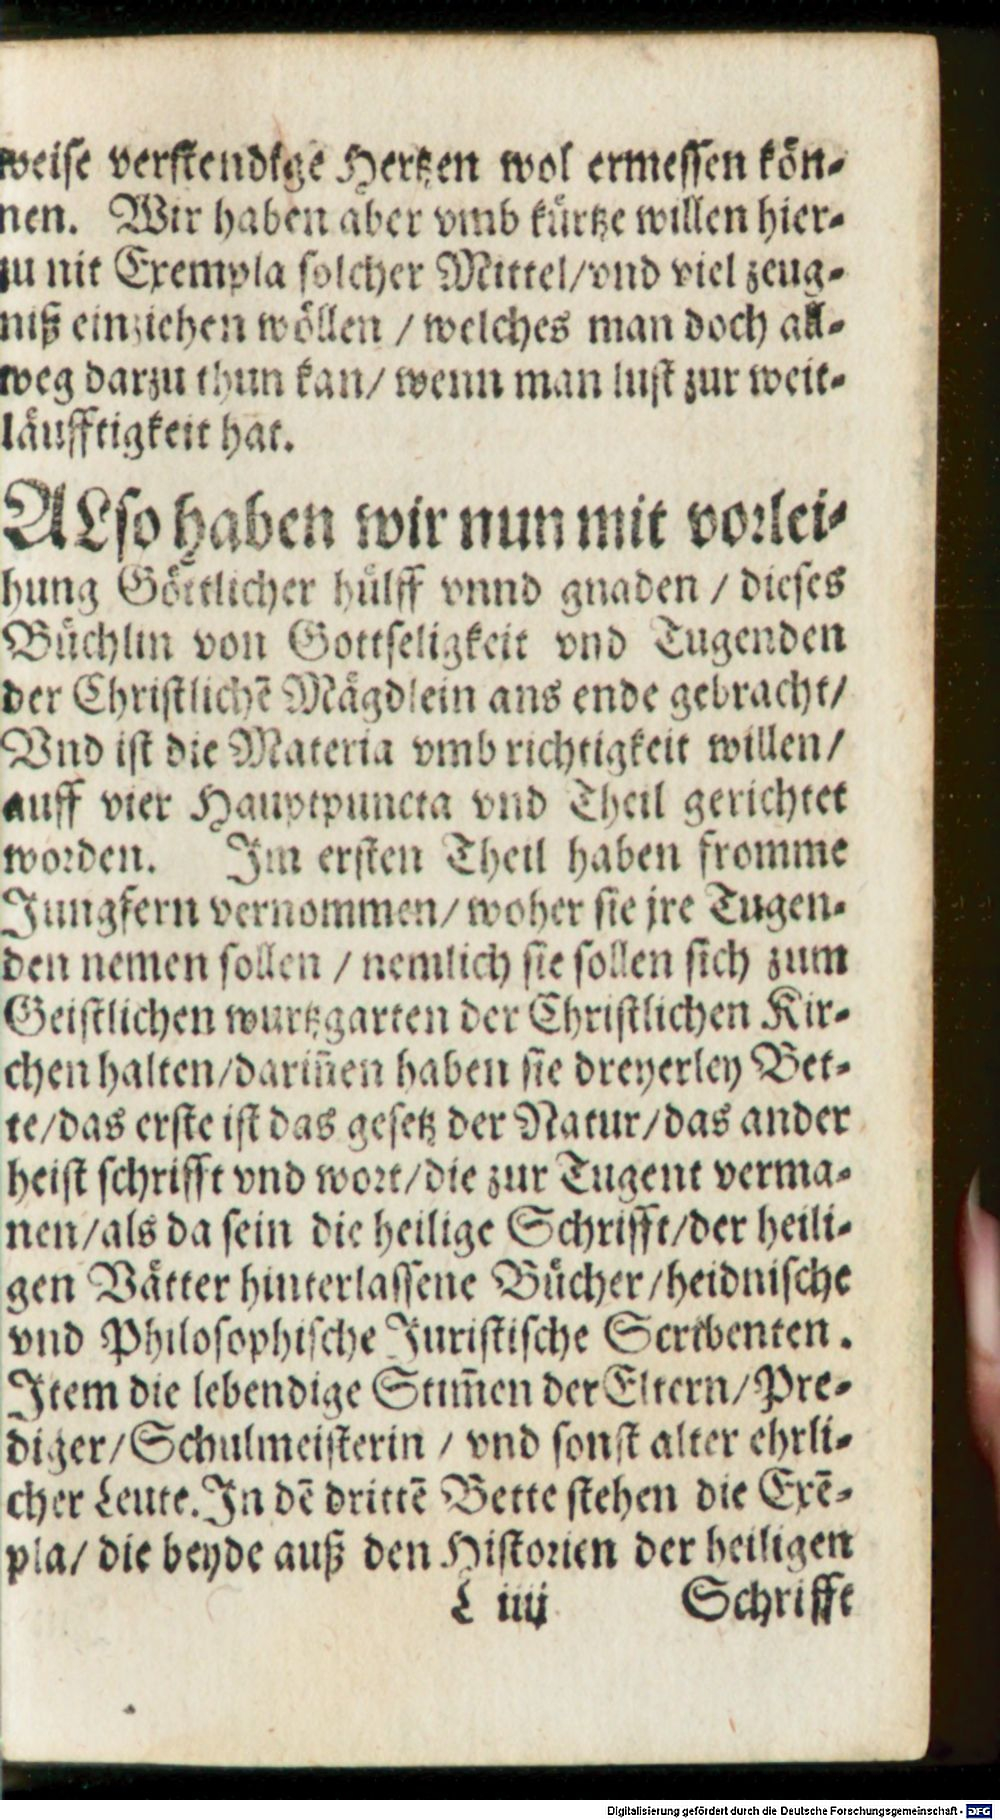 weise verstendige Hertzen wol ermessen kön-
nen. Wir haben aber vmb kürtze willen hier-
zu nit Exempla solcher Mittel/vnd viel zeug-
niß einziehen wöllen / welches man doch all-
weg darzu thun kan/ wenn man lust zur weit-
läufftigkeit hat.
ALso haben wir nun mit vorlei-
hung Göttlicher hülff vnnd gnaden / dieses
Büchlin von Gottseligkeit vnd Tugenden
der Christlichē Mägdlein ans ende gebracht/
Vnd ist die Materia vmb richtigkeit willen/
auff vier Hauptpuncta vnd Theil gerichtet
worden. Im ersten Theil haben fromme
Jungfern vernommen/ woher sie jre Tugen-
den nemen sollen / nemlich sie sollen sich zum
Geistlichen wurtzgarten der Christlichen Kir-
chen halten/dariñen haben sie dreyerley Bet-
te/das erste ist das gesetz der Natur/das ander
heist schrifft vnd wort/die zur Tugent verma-
nen/als da sein die heilige Schrifft/der heili-
gen Vätter hinterlassene Bücher/heidnische
vnd Philosophische Juristische Scribenten.
Item die lebendige Stim̃en der Eltern/Pre-
diger/Schulmeisterin / vnd sonst alter ehrli-
cher Leute. In dē drittē Bette stehen die Exē-
pla/ die beyde auß den Historien der heiligen
L iiij Schrifft
Digitalisierung gefördert durch die Deutsche Forschungsgemeinschaft - DFG